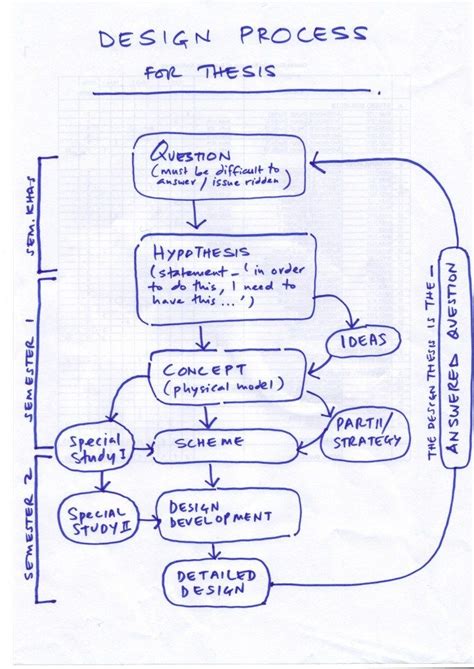 DESIGN PROCESS
FOR THESIS
QUESTION
(must be difficult to
answer / issue ridden)
SEM. KHAS
HYPOTHESIS
(statement - 'in order
to do this, I need to
have this ...')
IDEAS
SEMESTER 1
CONCEPT
(physical model)
Special
Study I
SCHEME
PART II/
STRATEGY
SEMESTER 2
Special
STUDY II
DESIGN
DEVELOPMENT
DETAILED
DESIGN
THE DESIGN THESIS IS THE -
ANSWERED QUESTION